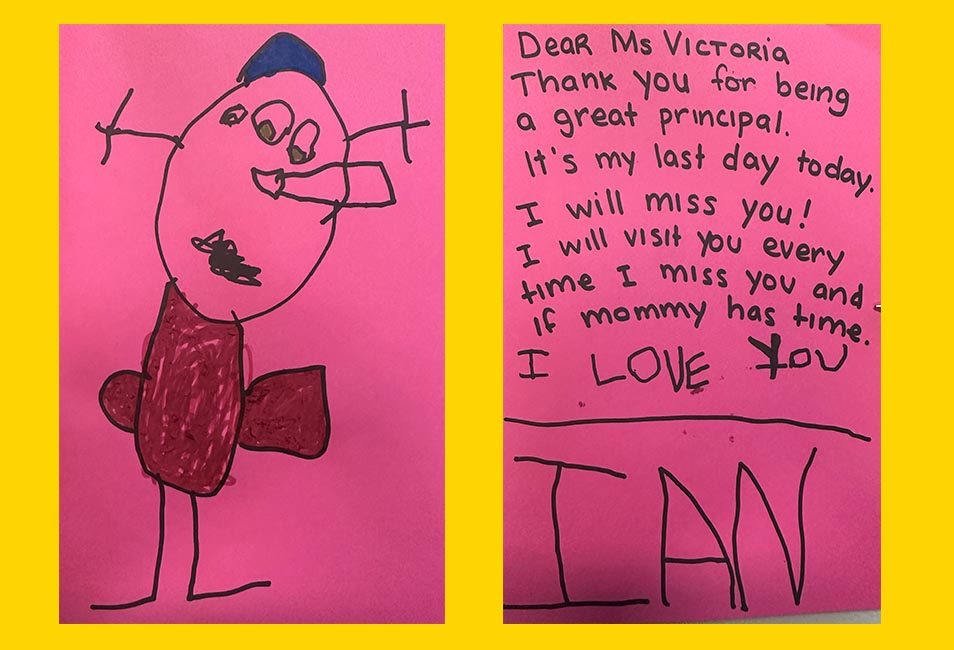 Dear Ms Victoria
Thank you for being
a great principal.
It's my last day today.
I will miss you!
I will visit you every
time I miss you and
if mommy has time.
I LOVE YOU
IAN